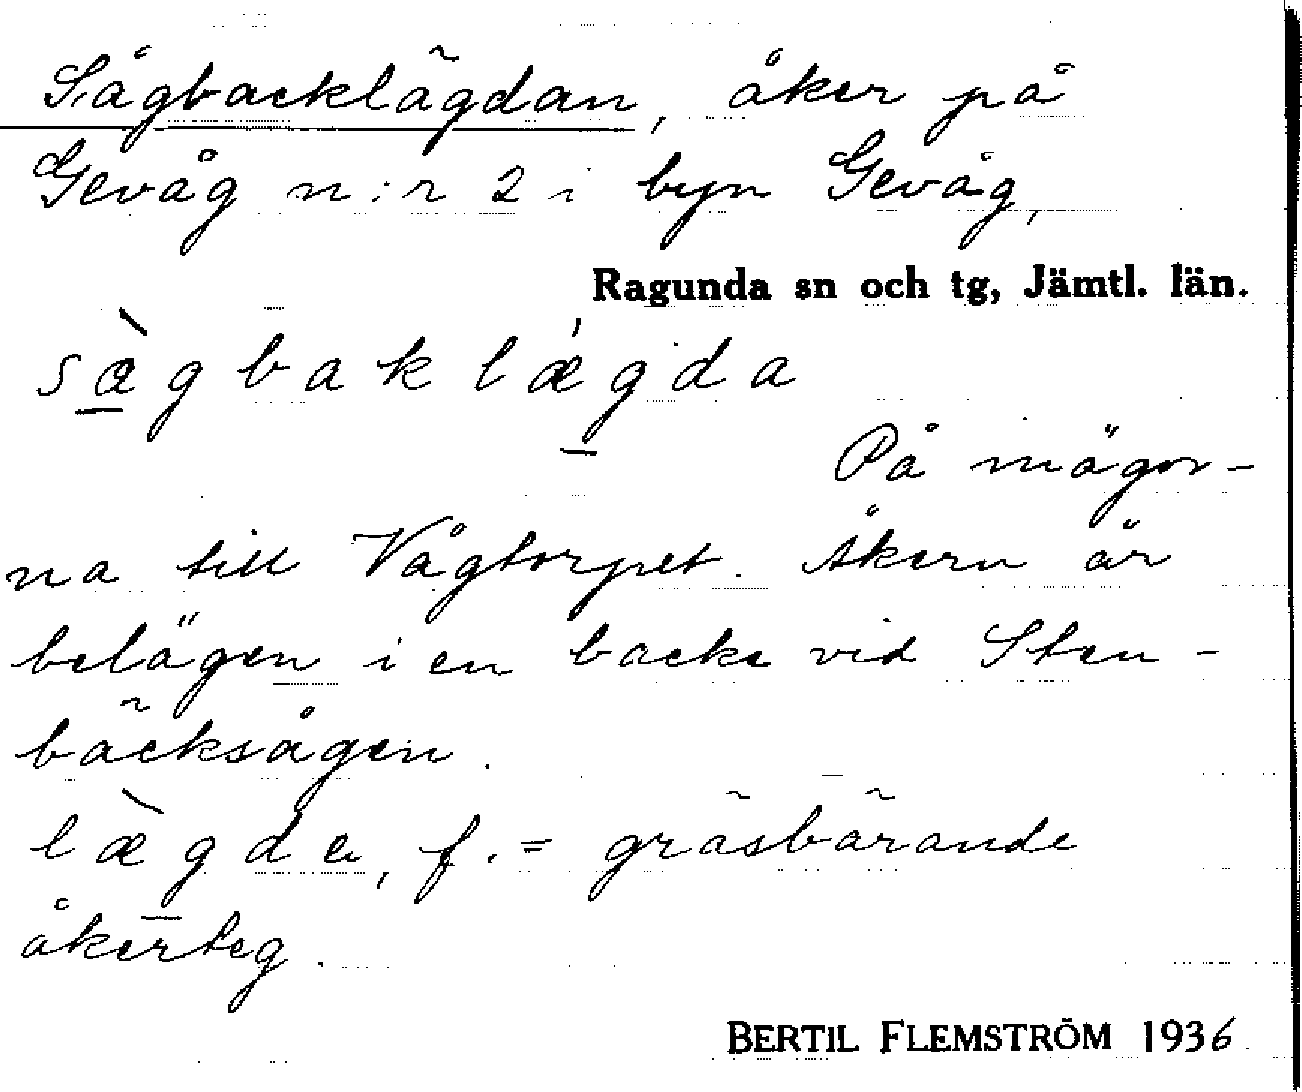 Sågbacklägdan, åker på
Gevåg n:r 2 i byn Gevåg,
Ragunda sn och tg, Jämtl. län.
sæ̀gbaklǽgda
På mägor-
na till Vågtorpet. Åkern är
belägen i en backe vid Sten-
bäcksågen.
læ̀gda, f. = gräsbärande
åkerteg.
BERTIL FLEMSTRÖM 1936